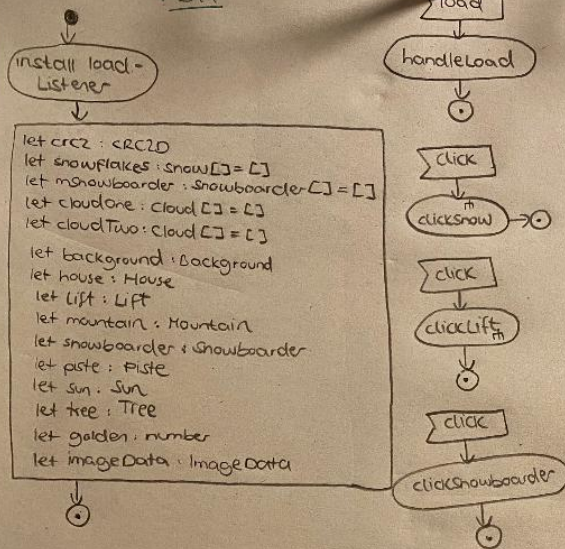 load
install load-
Listener
handleLoad
let crc2 : CRC2D
let snowflakes : Snow[] = []
let msnowboarder : Snowboarder[] = []
let cloudOne : Cloud[] = []
let cloudTwo : Cloud[] = []
let background : Background
let house : House
let lift : Lift
let mountain : Mountain
let snowboarder : Snowboarder
let piste : Piste
let sun : Sun
let tree : Tree
let golden : number
let imageData : ImageData
click
clickSnow
click
clickLift
click
clickSnowboarder